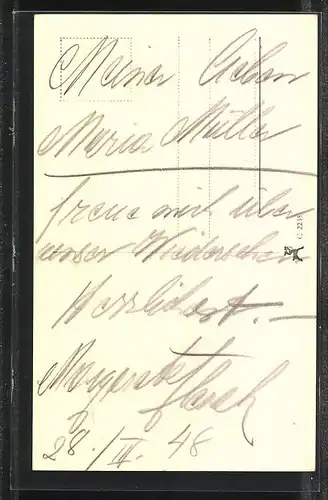 Meiner lieben
Maria Müller
freue mich über
unser Wiedersehen
Herzlichst.
28./IV. 48